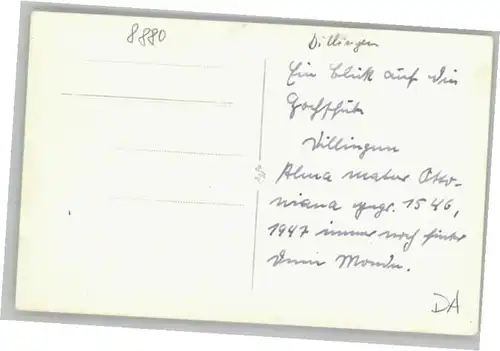 8880
Dillingen
Ein Blick auf die
Hochschule
Dillingen
Alma mater Otto-
niana gegr. 1546,
1947 immer noch hinter
dem Monde.
DA